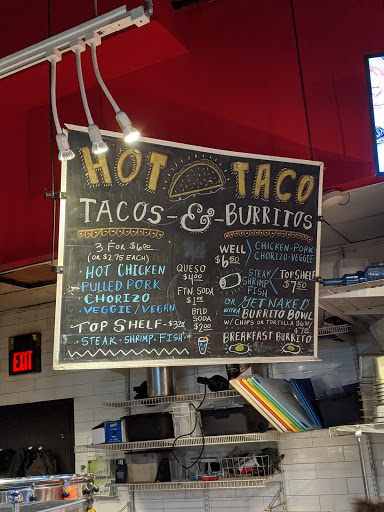 HOT TACO
TACOS-&-BURRITOS
3 FOR $6.00
(OR $2.75 EACH)
• HOT CHICKEN
• PULLED PORK
• CHORIZO
• VEGGIE/VEGAN
TOP SHELF-$3.75
• STEAK • SHRIMP • FISH •
QUESO
$4.00
FTN. SODA
$1.00
BTLD SODA
$2.00
WELL
$6.50
CHICKEN-PORK
CHORIZO-VEGGIE
STEAK
SHRIMP
FISH
TOP SHELF
$7.50
OR GET NAKED
WITH A BURRITO BOWL
W/ CHIPS OR TORTILLA
BREAKFAST BURRITO
EXIT